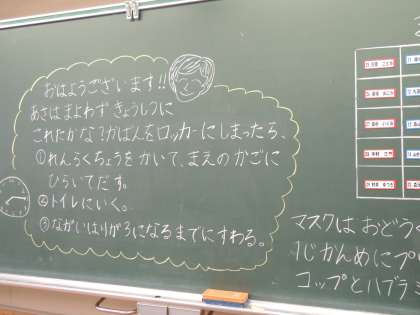 おはようございます!!
あさはまよわず きょうしつに
これたかな?かばんをロッカーにしまったら、
①れんらくちょうをかいて、まえのかごに
ひらいてだす。
②トイレにいく。
③ながいはりが3になるまでにすわる。
マスクはおどうぐ
1じかんめにプリ
コップとハブラシ